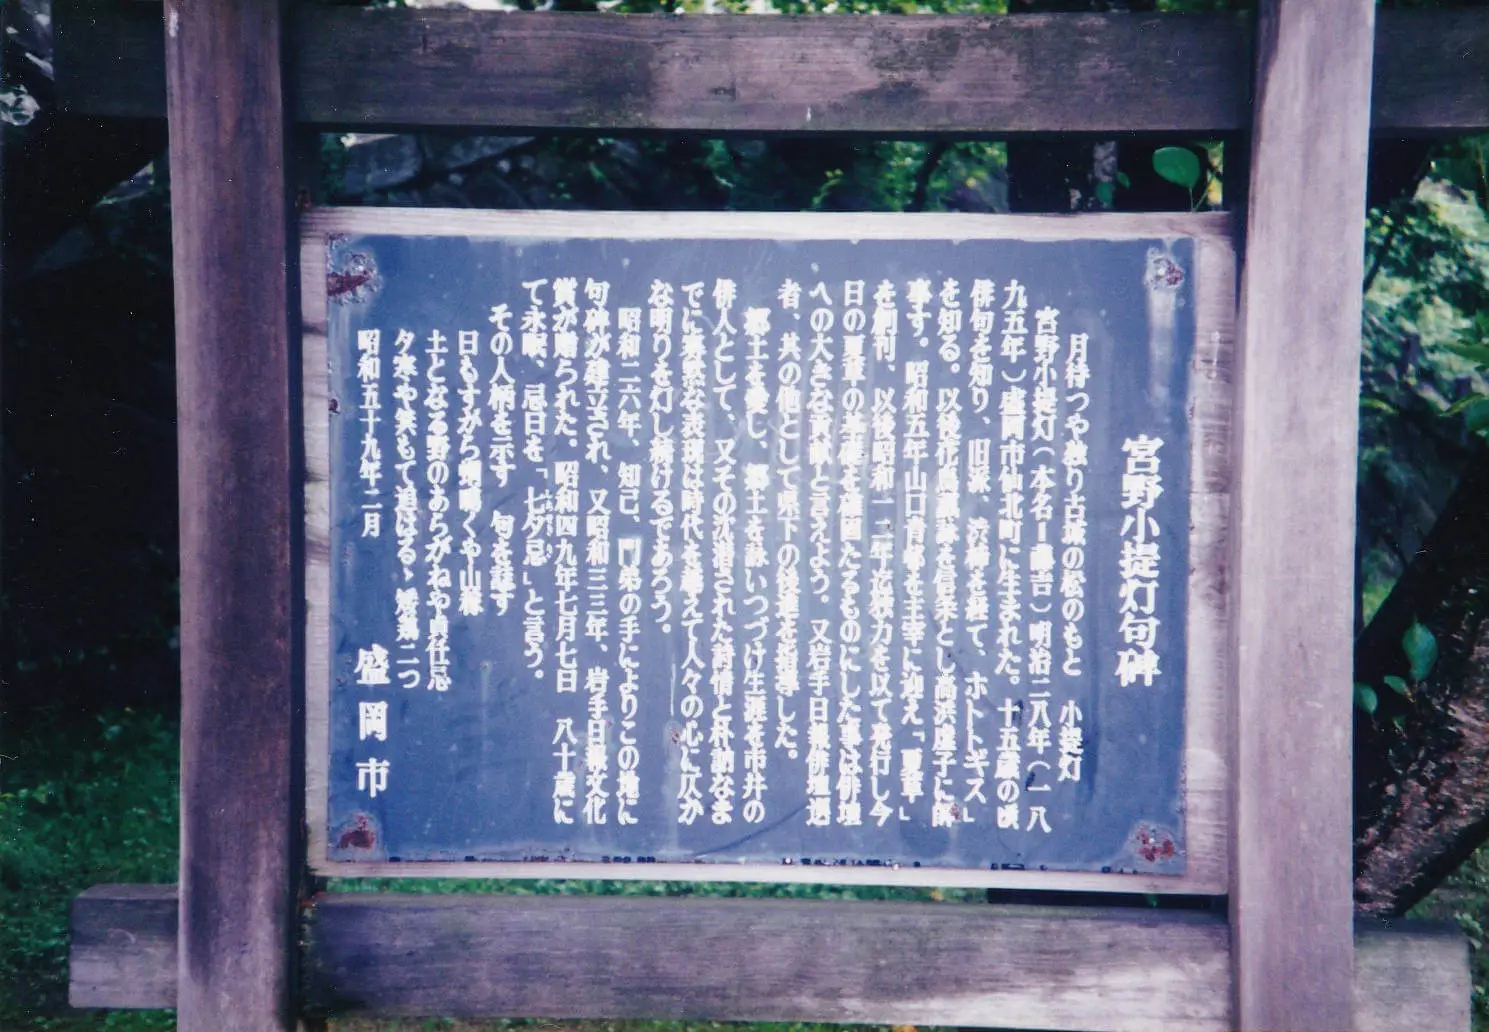 宮野小提灯句碑
月待つや 古城の松のもと 小提灯
宮野小提灯(本名 吉)明治二八年(一八
九五年)盛岡市仙北町に生まれた。十五歳の頃
俳句を知り、旧派、渋柿を経て、ホトトギス」
を知る。以後花鳥諷詠を信条とし高浜虚子に師
事す。昭和五年山口青邨を主宰に迎え「夏草」
を創刊、以後昭和二二年迄独力を以て発行し今
日の夏草の基礎を確固たるものにした事は俳壇
への大きな貢献と言えよう。又岩手日報俳壇選
者、其の他として県下の後進を指導した。
郷土を愛し、郷土を詠いつづけ生涯を市井の
俳人として、又その沈潜された詩情と朴訥なま
でに 然な表現は時代を越えて人々の心に仄か
な明りを灯し続けるであろう。
昭和二六年、知己、門弟の手によりこの地に
句碑が建立され、又昭和三三年、岩手日報文化
賞が贈られた。昭和四九年七月七日 八十歳に
て永眠、忌日を「七夕忌」と言う。
その人柄を示す 句を録す
日もすがら 鳴くや山
土となる野のあらがねや貞任忌
夕寒や笑もて追はるゝ矮鶏二つ
昭和五十九年二月
盛岡市